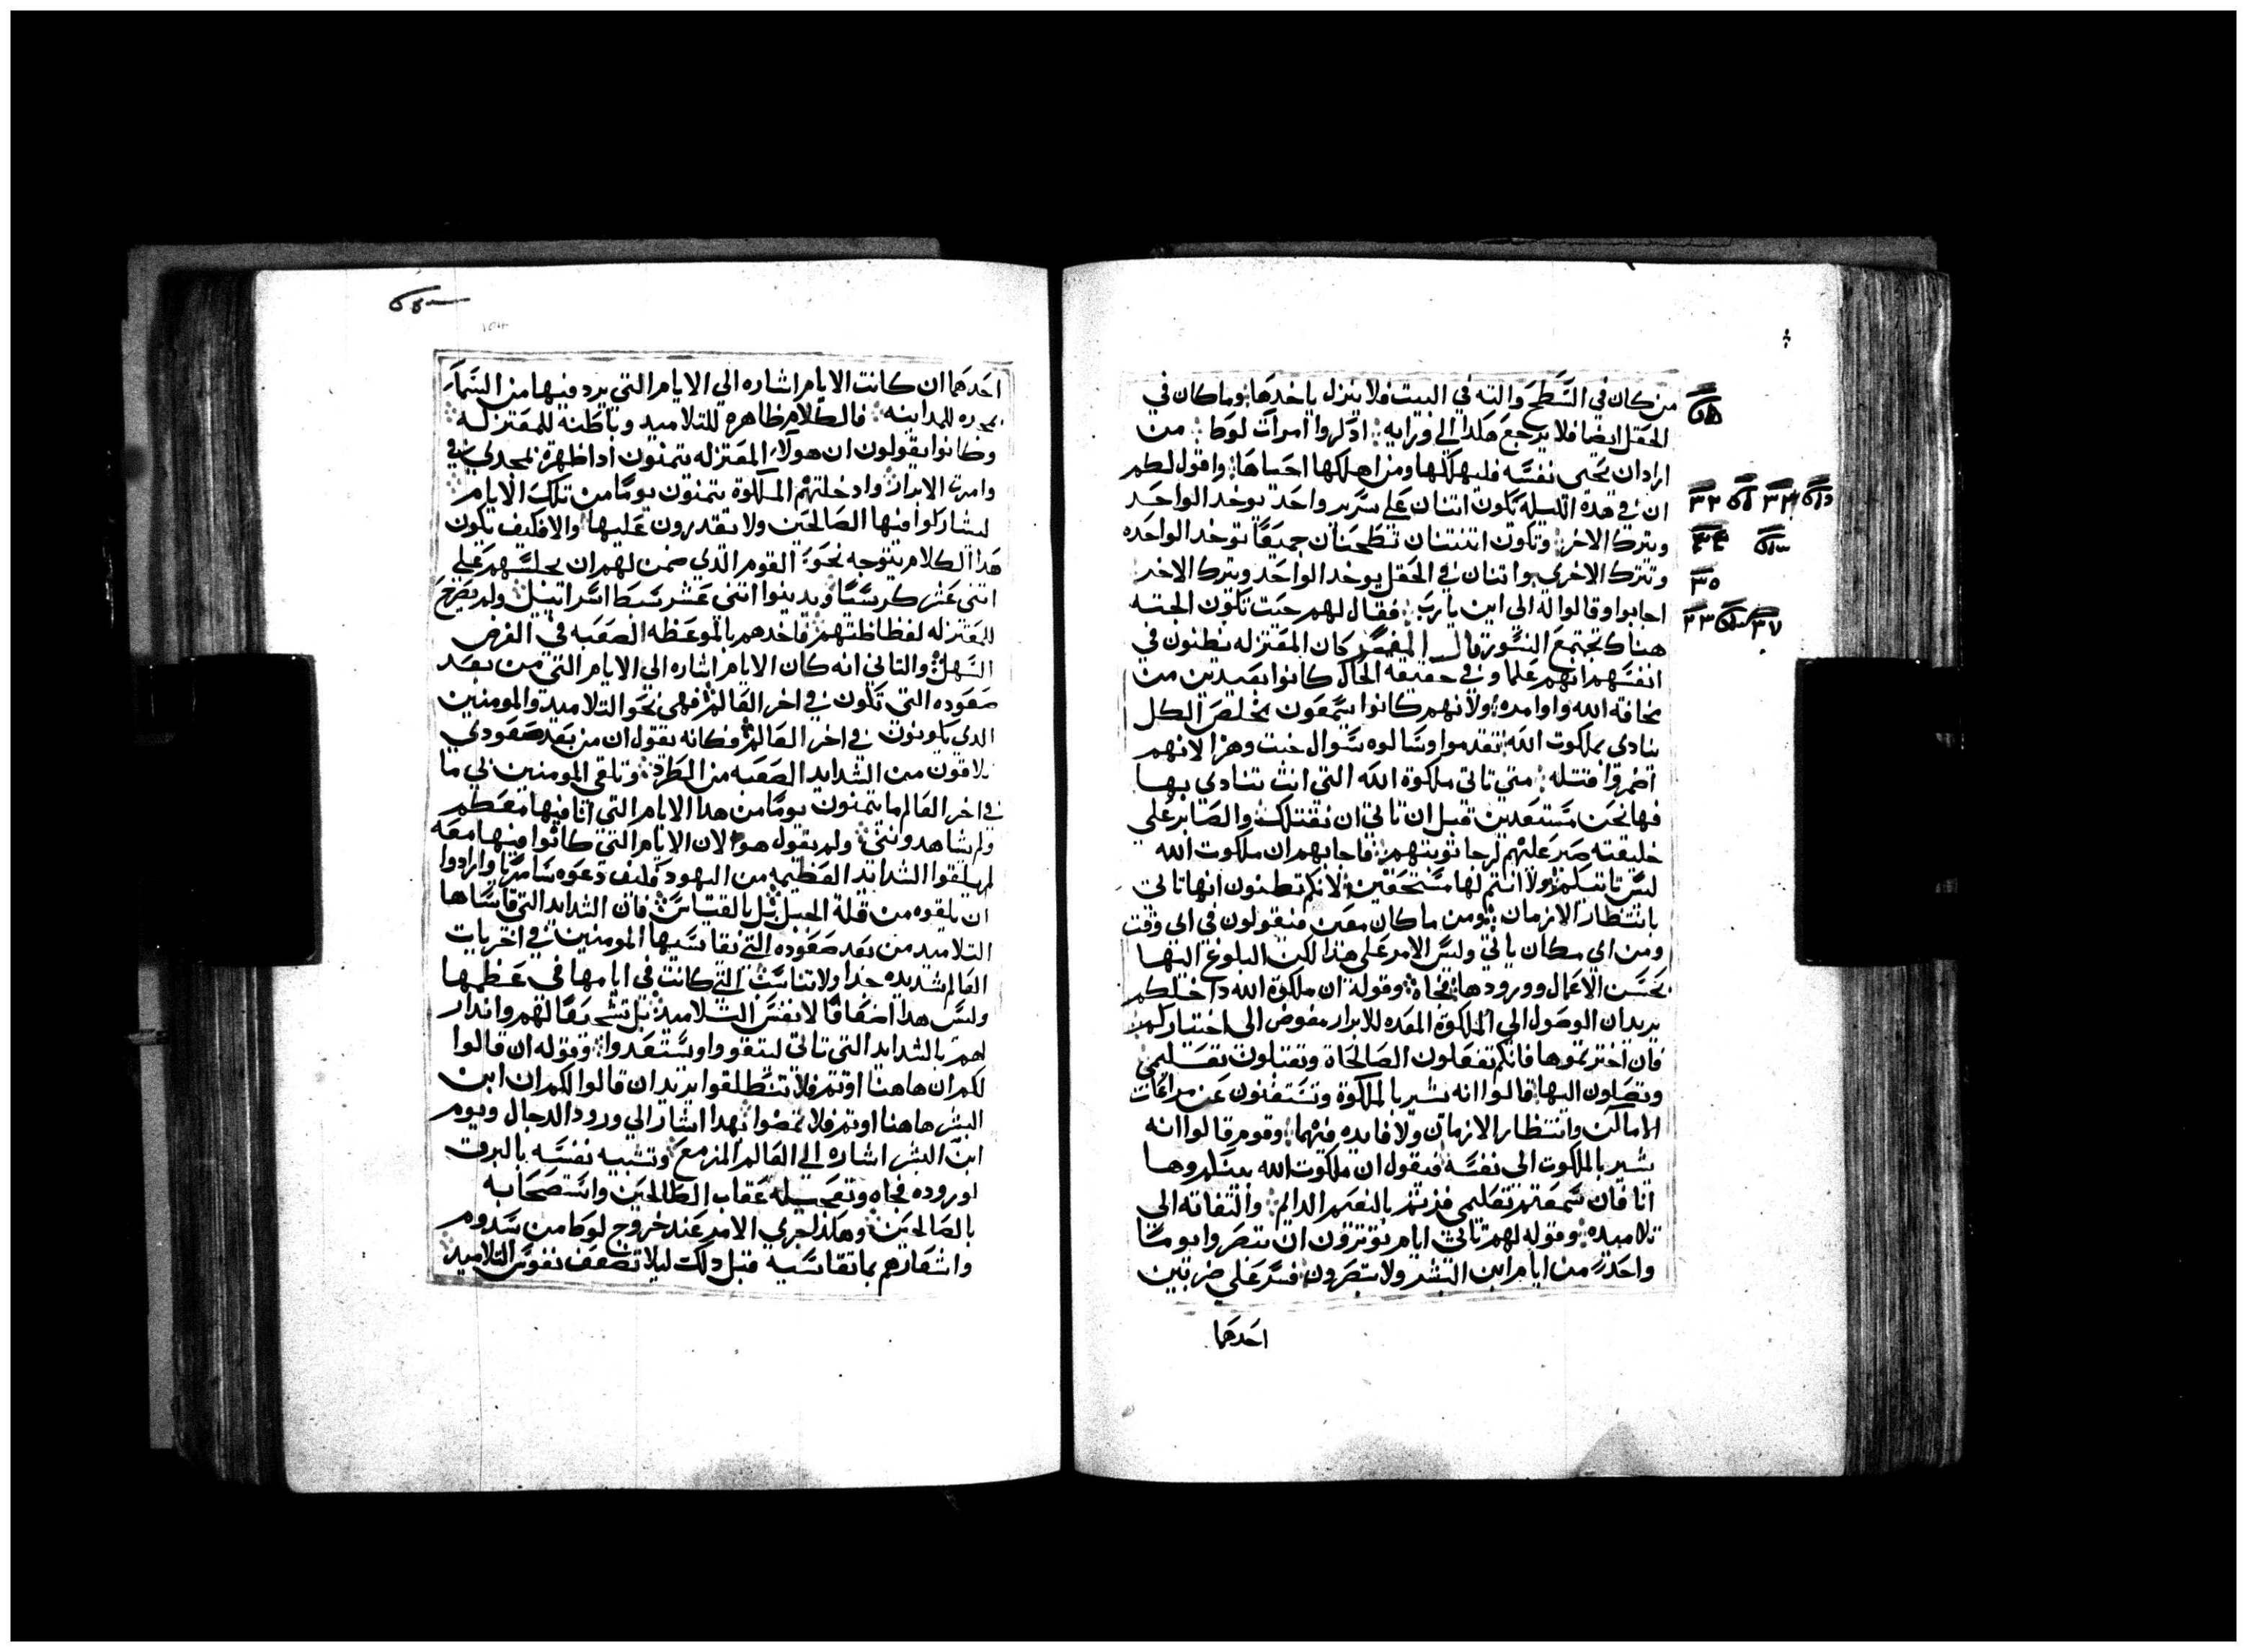 من كان في السطح والته في البيت فلا ينزل ياخدها وما كان في
الحقل ايضا فلا يرجع هكدا الي ورايه ادكروا امرات لوط من
اراد ان يحيى نفسه فليهلكها ومن اهلكها احياها واقول لكم
ان في هده الليله تكون اتنان علي سرير واحد يوخد الواحد
ويترك الاخر وتكون اتنتنان تطحنان جميعًا توخد الواحده
وتترك الاخري واتنان في الحقل يوخد الواحد ويترك الاخر
اجابوا وقالوا له الي اين يا رب فقال لهم حيت تكون الجته
هناك تجتمع النسور قال المفسر كان المعتزله يظنون في
انفسهم انهم علما وفي حقيقه الحال كانوا بعيدين من
مخافة الله واوامره ولانهم كانوا يسمعون مخلص الكل
ينادي بملكوت الله تقدموا وسالوه سوال خبت وهزا لانهم
اضمروا قتله متي تاتي ملكوة الله التي انت تنادي بها
فها نحن مستعدين قبل ان تاتي ان نقتلك والصابر علي
خليقته صبر عليهم لرجا توبتهم فاجابهم ان ملكوت الله
ليس تاتيكم ولا انتم لها مستحقين لانكم تظنون انها تاتي
بانتظار الازمان ومن مكان معين فتقولون في اي وقت
ومن اي مكان ياتي وليس الامر علي هذا لكن البلوغ اليها
بحسن الاعمال وورودها فجاة وقوله ان ملكوة الله داخلكم
يريد ان الوصول الي الملكوة المعده للابرار مفوض الي اختياركم
فان اخترتموها فانكم تفعلون الصالحاة وتقبلون تعليمي
وتصلون اليها قالوا انه بشير بالملكوة وتستغنون عن مراعات
الاماكن وانتظار الازمان ولا فايده فيهما وقوم قالوا انه
يشير بالملكوت الي نفسه فيقول ان ملكوت الله
انا فان سمعتم تعليمي فزتم بالنعيم الدايم والتفاته الي
تلاميده وقوله لهم تاتي ايام توترون ان تنضروا يومًا
واحدً من ايام ابن البشر ولا تنضرون فسر علي ضربين
احدهما
احدهما ان كانت الايام اشاره الي الايام التي يرد فيها من السما
للمداينه فالكلام ظاهره للتلاميد وباطنه للمعتزله
وكانوا يقولون ان هولاء المعتزله يتمنون ادا ظهرة بمجدي في
وامرت الابرار وادخلتهم الملكوة يتمنون يومًا من تلك الايام
ليشاركوا فيها الصالحين ولا يقدرون عليها والا فكيف يكون
هدا الكلام يتوجه نحو القوم الدي ضمن لهم ان يجلسهم علي
اتني عشر كرسيًا ويدينوا اتني عشر سبط اسرائيل ولم يصرح
للمعتزله لفظاظتهم فاخدهم بالموعظه الصعبه في الفرض
السهل والتاني انه كان الايام اشاره الي الايام التي من بعد
صعوده التي تكون في اخر العالم فهي نحو التلاميد والمومنين
الدي يكونون في اخر العالم فكانه يقول ان من بعد صعودي
تلاقون من الشدايد الصعبه من الطرد وتلقى المومنين بي ما
في اخر العالم ما يتمنون يومًا من هدا الايام التي انا فيها معكم
ولم يشاهدونني ولم يقول هولا لان الايام التي كانوا فيها معه
لم يلقوا الشدايد العظيمه من اليهود فكيف دعوه سامريًا وارادوا
ان يلقوه من قلة الجبل بل بالقياس فان الشدايد التي قاساها
التلاميد من بعد صعوده التي يقاسيها المومنين في اخريات
العالم شديده جدا ولا تناسب التي كانت في ايامها في عظمها
وليس هدا اضعافًا لانفس التلاميد بل تشجيعًا لهم وانداراً
لهم بالشدايد التي تاتي ليتقووا ويستعدوا وقوله ان قالوا
لكم ان هاهنا او تم فلا تنطلقوا يريد ان قالوا لكم ان ابن
البشر هاهنا او تم فلا تمضوا بهدا اشار الي ورود الدجال ويوم
ابن البشر اشاره الي العالم المزمع وتشبيه نفسه بالبرق
لوروده فجاه وتعجيله عقاب الطالحين وانتصحابه
بالصالحين وهكذا جري الامر عند خروج لوط من سدوم
واشعارهم بما تقاسيه قبل دلك ليلا تضعف نفوس التلاميد